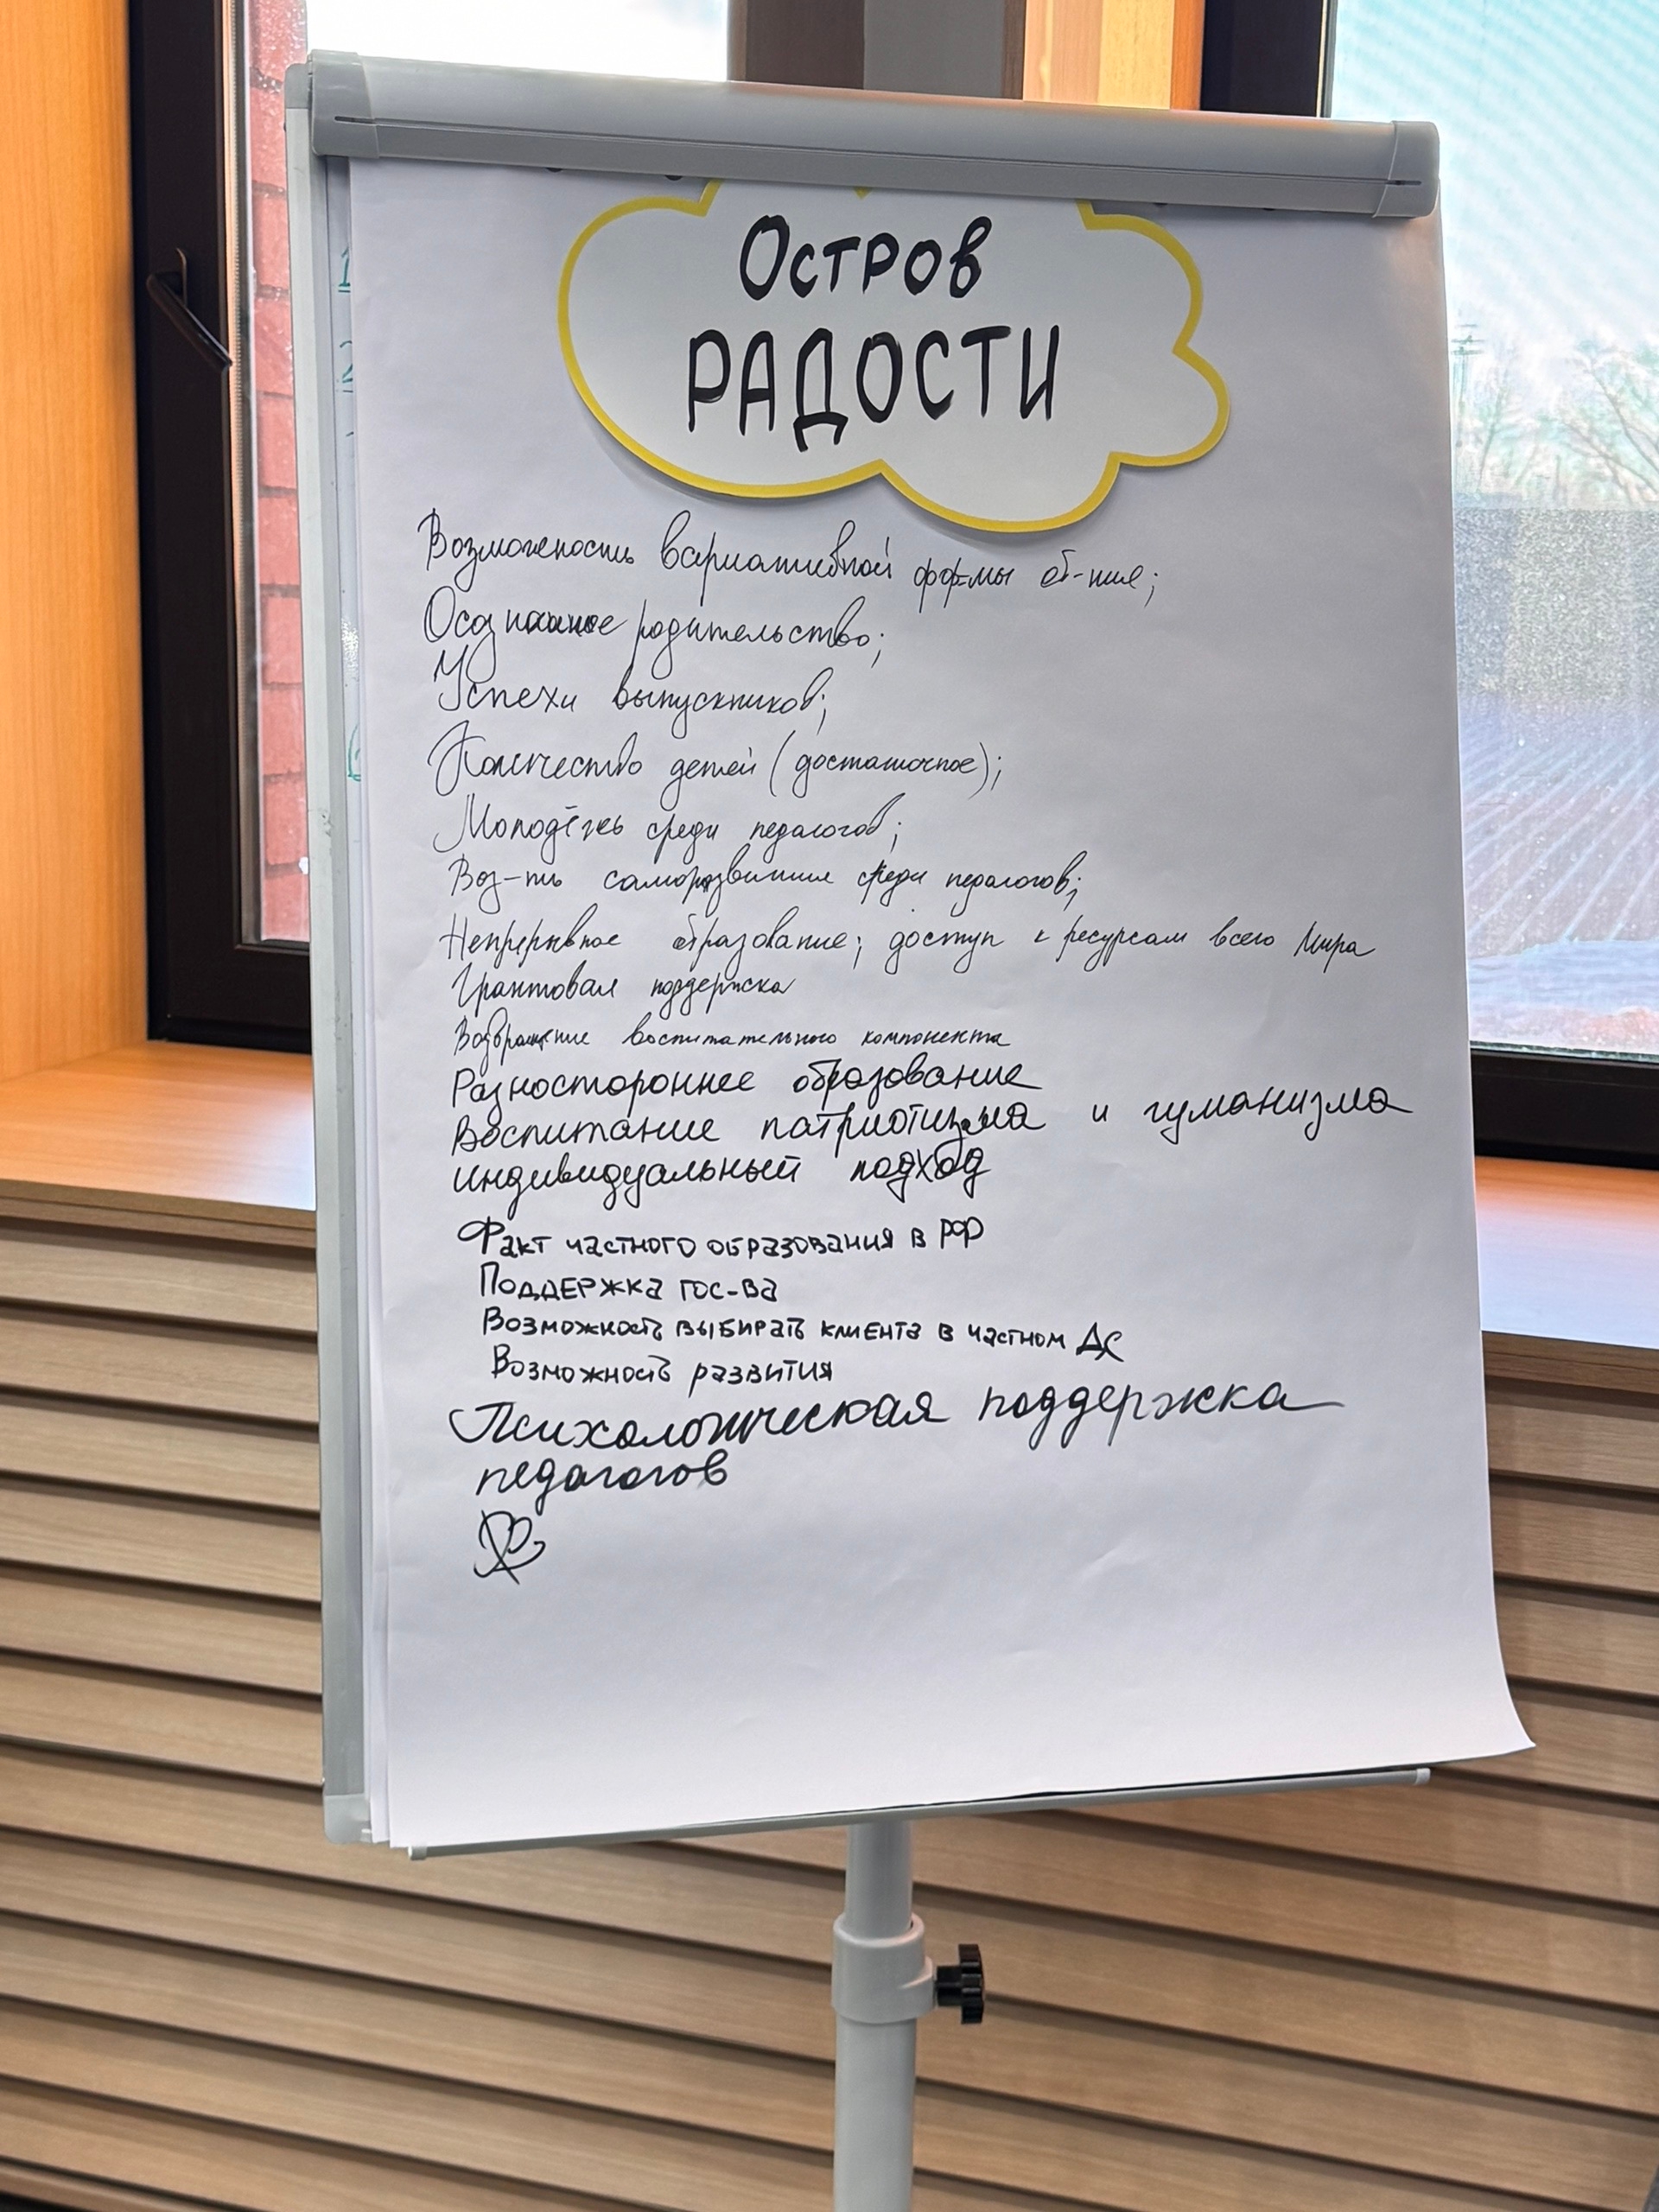 Остров
РАДОСТИ
Возможность вариативной формы об-ния;
Осознанное родительство;
Успехи выпускников;
Количество детей (достаточное);
Молодёжь среди педагогов;
Воз-ть саморазвития среди педагогов;
Непрерывное образование; доступ к ресурсам всего Мира
Грантовая поддержка
Возвращение воспитательного компонента
Разностороннее образование
Воспитание патриотизма и гуманизма
индивидуальный подход
Факт частного образования в РФ
Поддержка гос-ва
Возможность выбирать клиента в частном ДС
Возможность развития
Психологическая поддержка
педагогов